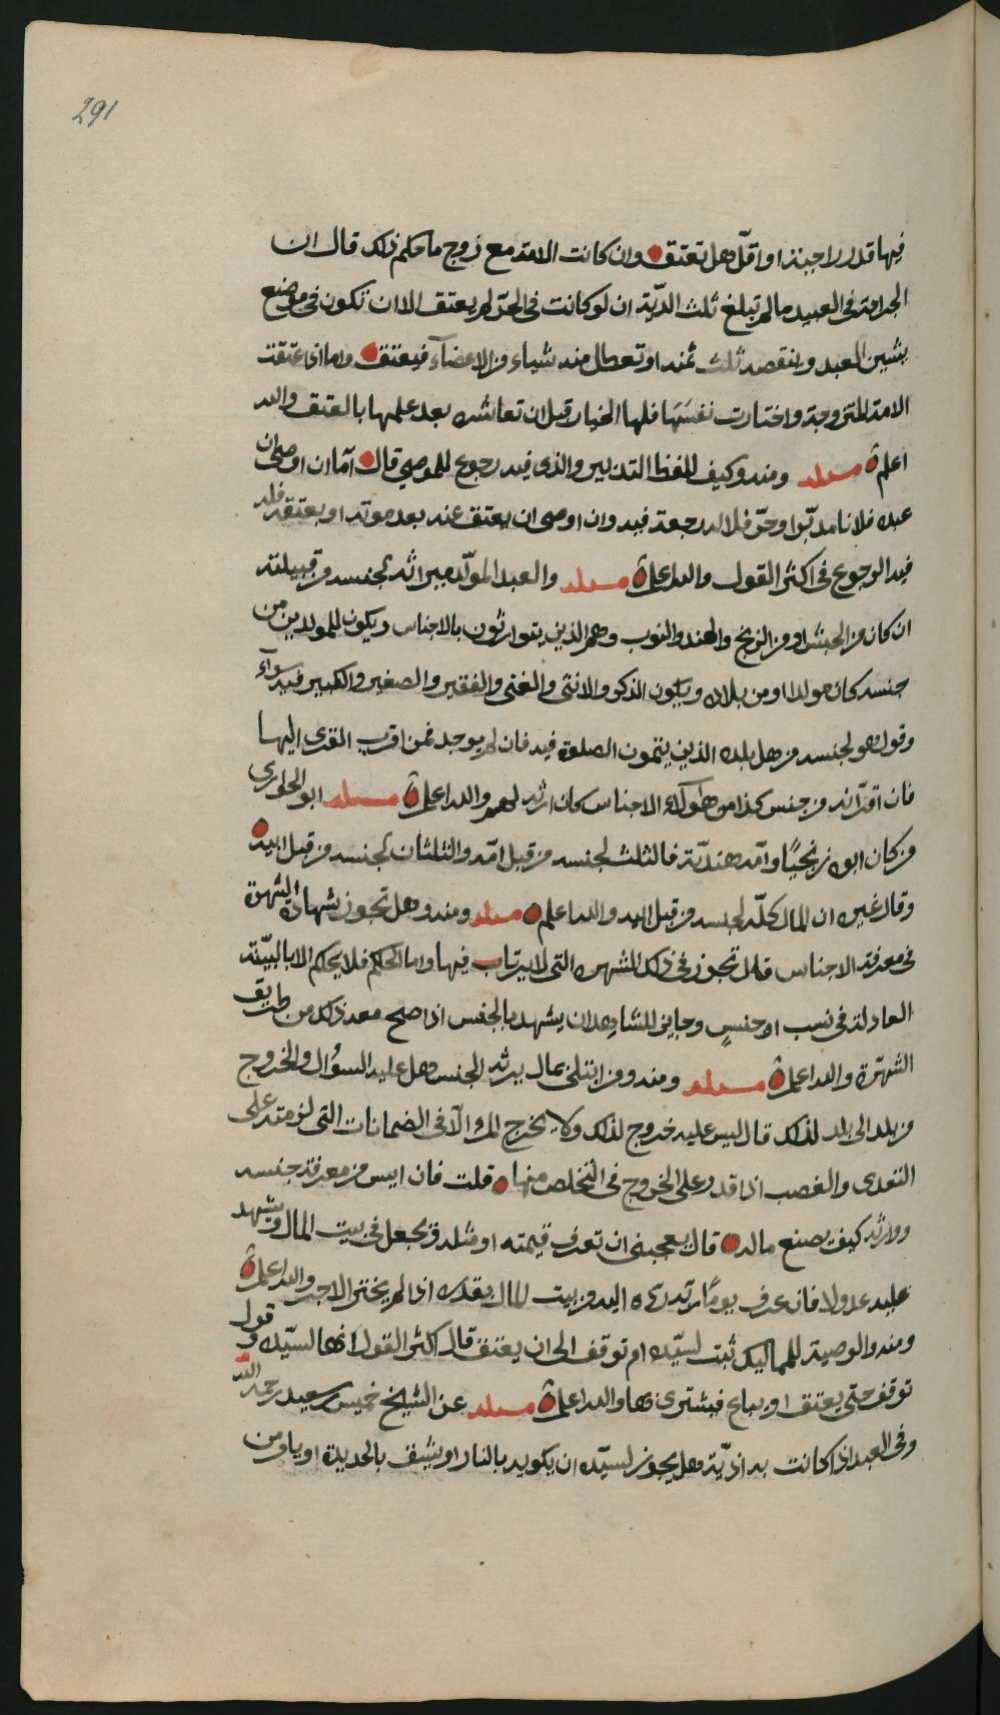 291
فيها قدر راجبة او اقل هل تعتق وان كانت الامة مع زوج ما حكم ذلك قال ان
الجراحة في العبيد ما لم تبلغ ثلث الدية ان لو كانت في الحر لم يعتق الا ان تكون في موضع
يشين العبد وينقصه ثلث ثمنه او تعطل منه شياء من الاعضآء فيعتق واما اذا عتقت
الامة المتزوجة واختارت نفسها فلها الخيار قبل ان تعاشره بعد علمها بالعتق والله
اعلم مسئلة ومنه وكيف اللفظ التدبير والذي فيه رجوع للموصي قال اما ان اوصى ان
عبده فلانا مدبرا وحر فلا له رجعة فيه وان اوصى ان يعتق عنه بعد موته او يعتقه فله
فيه الرجوع في اكثر القول والله اعلم مسئلة والعبد المولد ميراثه لجنسه من قبيلته
ان كان من الحبش او من الزنج والهند والنوب وهم الذين يتوارثون بالاجناس ويكون للمولدين من
جنسه كان مولدا او من بلاده ويكون الذكر والانثى والغني والفقير والصغير والكبير فيه سوآء
وقول هو لجنسه من هل بلده الذين يتمون الصلوة فيه فان لم يوجد فمن اقرب القرى اليها
فان اقر انه من جنس كذا من هؤلاء الاجناس كان ارثه لهم والله اعلم مسئلة ابو الحواري
من كان ابوه زنجيا وامه هندية فالثلث لجنسه من قبل امه والثلثان لجنسه من قبل ابيه
وقال غيره ان المال كله لجنسه من قبل ابيه والله اعلم مسئلة ومنه وهل تجوز شهادة الشهرة
في معرفة الاجناس قال تجوز في ذلك الشهرة التي لا يرتاب فيها واما الحكم فلا يحكم الا بالبينة
العادلة في نسب او جنس وجايز للشاهد ان يشهد بالجنس اذا صح معه ذلك من طريق
الشهرة والله اعلم مسئلة ومنه ومن ابتلي بمال يرثه الجنس وهل عليه السؤال والخروج
من بلد الى بلد لذلك قال ليس عليه خروج لذلك ولا يخرج المرء الا في الضمانات التي لزمته على
التعدي والغصب اذا قدر على الخروج في التخلص منها قلت فان ايس من معرفة جنسه
ووارثه كيف يصنع ماله قال يعجبني ان تعرف قيمته او مثله ويجعل في بيت المال ويشهد
عليه عدولا فان عرف يوما ربه رده اليه من بيت المال بقدره اذا لم يختر الاجر والله اعلم
ومنه والوصية للمماليك تثبت لسيده ام توقف الى ان يعتق قال اكثر القول انها لسيده وقول
توقف حتى يعتق او يباع فيشترى بها والله اعلم مسئلة عن الشيخ خميس سعيد رحمه الله
وفي العبد اذا كانت به اذية هل يجوز لسيده ان يكويه بالنار او يشف بالحديدة او ياومن